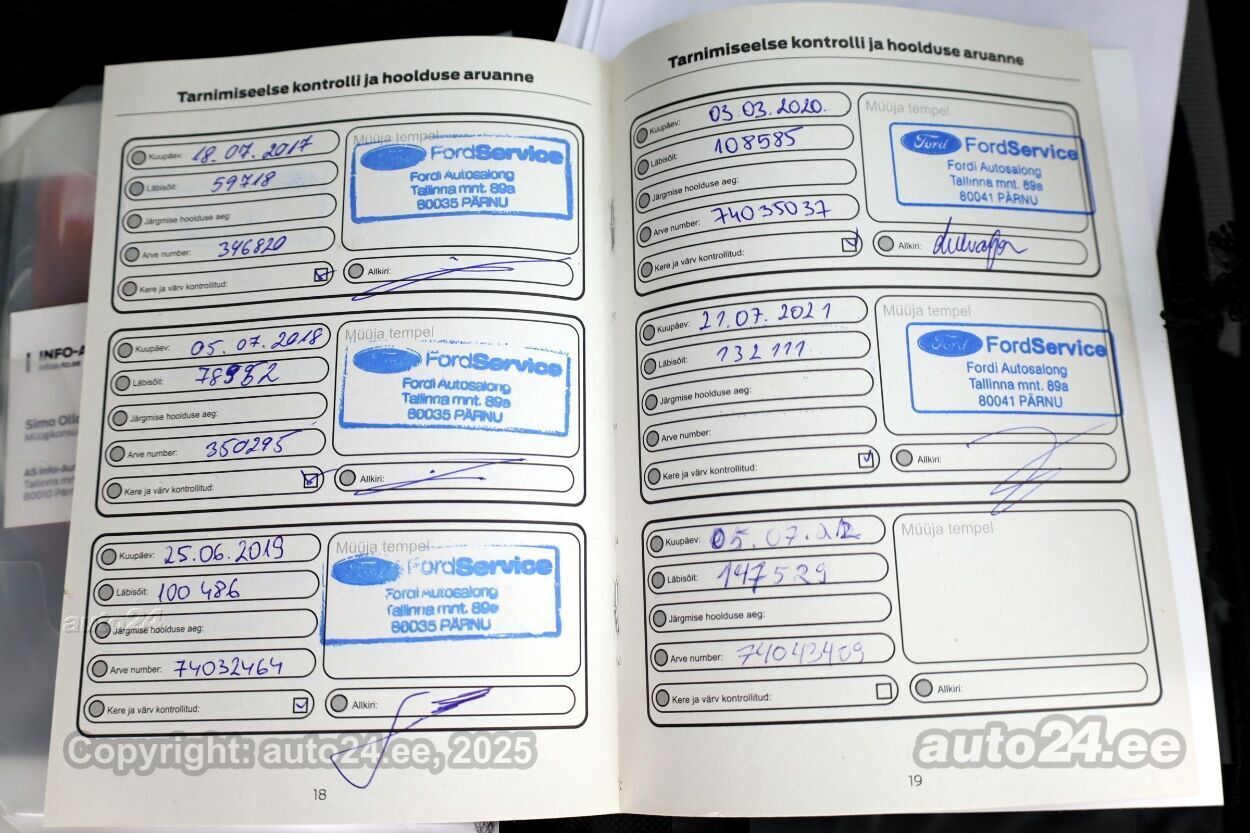 Tarnimiseelse kontrolli ja hoolduse aruanne
Kuupäev: 18.07.2017
Läbisõit: 59718
Järgmise hoolduse aeg:
Arve number: 346820
Kere ja värv kontrollitud:
Müüja tempel
Ford FordService
Fordi Autosalong
Tallinna mnt. 89a
80035 PÄRNU
Allkiri:
Kuupäev: 05.07.2018
Läbisõit: 78952
Järgmise hoolduse aeg:
Arve number: 350295
Kere ja värv kontrollitud:
Müüja tempel
Ford FordService
Fordi Autosalong
Tallinna mnt. 89a
80035 PÄRNU
Allkiri:
Kuupäev: 25.06.2019
Läbisõit: 100 486
Järgmise hoolduse aeg:
Arve number: 74032464
Kere ja värv kontrollitud:
Müüja tempel
Ford FordService
Fordi Autosalong
Tallinna mnt. 89a
80035 PÄRNU
Allkiri:
18
Tarnimiseelse kontrolli ja hoolduse aruanne
Kuupäev: 03.03.2020.
Läbisõit: 108585
Järgmise hoolduse aeg:
Arve number: 74035037
Kere ja värv kontrollitud:
Müüja tempel
Ford FordService
Fordi Autosalong
Tallinna mnt. 89a
80041 PÄRNU
Allkiri:
Kuupäev: 21.07.2021
Läbisõit: 132111
Järgmise hoolduse aeg:
Arve number:
Kere ja värv kontrollitud:
Müüja tempel
Ford FordService
Fordi Autosalong
Tallinna mnt. 89a
80041 PÄRNU
Allkiri:
Kuupäev: 05.07.
Läbisõit: 147529
Järgmise hoolduse aeg:
Arve number: 74043409
Kere ja värv kontrollitud:
Müüja tempel
Allkiri:
19
INFO-A
infoauto.ee
Simo
AS Info-Au
Tallinna mn
80010 Pärn
auto24
Copyright: auto24.ee, 2025
auto24.ee